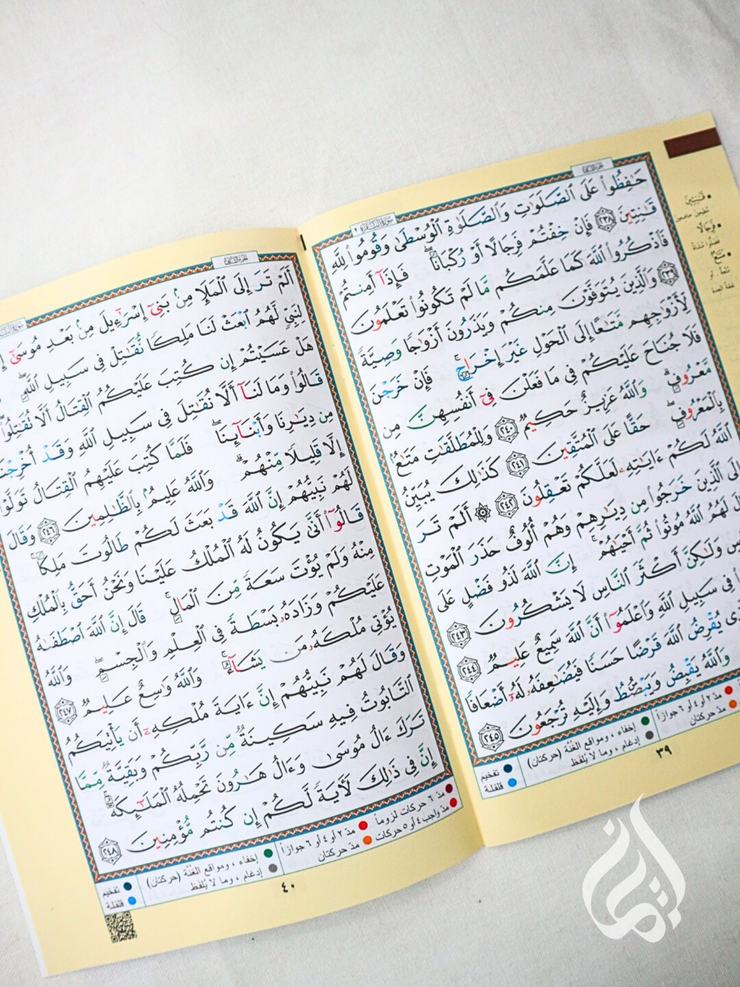 الجزء الثاني
سورة البقرة ٢
حَٰفِظُوا۟ عَلَى ٱلصَّلَوَٰتِ وَٱلصَّلَوٰةِ ٱلْوُسْطَىٰ وَقُومُوا۟ لِلَّهِ
قَٰنِتِينَ ٢٣٨ فَإِنْ خِفْتُمْ فَرِجَالًا أَوْ رُكْبَانًا ۖ فَإِذَآ أَمِنتُمْ
فَٱذْكُرُوا۟ ٱللَّهَ كَمَا عَلَّمَكُم مَّا لَمْ تَكُونُوا۟ تَعْلَمُونَ
٢٣٩ وَٱلَّذِينَ يُتَوَفَّوْنَ مِنكُمْ وَيَذَرُونَ أَزْوَٰجًا وَصِيَّةً
لِّأَزْوَٰجِهِم مَّتَٰعًا إِلَى ٱلْحَوْلِ غَيْرَ إِخْرَاجٍ ۚ فَإِنْ خَرَجْنَ
فَلَا جُنَاحَ عَلَيْكُمْ فِى مَا فَعَلْنَ فِىٓ أَنفُسِهِنَّ مِن
مَّعْرُوفٍ ۗ وَٱللَّهُ عَزِيزٌ حَكِيمٌ ٢٤٠ وَلِلْمُطَلَّقَٰتِ مَتَٰعٌۢ
بِٱلْمَعْرُوفِ ۖ حَقًّا عَلَى ٱلْمُتَّقِينَ ٢٤١ كَذَٰلِكَ يُبَيِّنُ
ٱللَّهُ لَكُمْ ءَايَٰتِهِۦ لَعَلَّكُمْ تَعْقِلُونَ ٢٤٢ ۞ أَلَمْ تَرَ
إِلَى ٱلَّذِينَ خَرَجُوا۟ مِن دِيَٰرِهِمْ وَهُمْ أُلُوفٌ حَذَرَ ٱلْمَوْتِ
لَهُمُ ٱللَّهُ مُوتُوا۟ ثُمَّ أَحْيَٰهُمْ ۚ إِنَّ ٱللَّهَ لَذُو فَضْلٍ عَلَى
وَلَٰكِنَّ أَكْثَرَ ٱلنَّاسِ لَا يَشْكُرُونَ ٢٤٣
فِى سَبِيلِ ٱللَّهِ وَٱعْلَمُوٓا۟ أَنَّ ٱللَّهَ سَمِيعٌ عَلِيمٌ ٢٤٤
يُقْرِضُ ٱللَّهَ قَرْضًا حَسَنًا فَيُضَٰعِفَهُۥ لَهُۥٓ أَضْعَافًا
وَٱللَّهُ يَقْبِضُ وَيَبْصُۜطُ وَإِلَيْهِ تُرْجَعُونَ ٢٤٥
• قَٰنِتِينَ
مطيعين خاشعين
• فَرِجَالًا
فصلّوا مشاة
مدّ ٢ أو ٤ أو ٦ جوازاً
مدّ حركتان
إخفاء، ومواقع الغُنّة (حركتان)
إدغام، وما لا يُلفظ
تفخيم
قلقلة
٣٩
الجزء الثاني
أَلَمْ تَرَ إِلَى ٱلْمَلَإِ مِنۢ بَنِىٓ إِسْرَٰٓءِيلَ مِنۢ بَعْدِ مُوسَىٰٓ
لِنَبِىٍّ لَّهُمُ ٱبْعَثْ لَنَا مَلِكًا نُّقَٰتِلْ فِى سَبِيلِ ٱللَّهِ ۖ
هَلْ عَسَيْتُمْ إِن كُتِبَ عَلَيْكُمُ ٱلْقِتَالُ أَلَّا تُقَٰتِلُوا۟ ۖ
قَالُوا۟ وَمَا لَنَآ أَلَّا نُقَٰتِلَ فِى سَبِيلِ ٱللَّهِ وَقَدْ أُخْرِجْنَا
مِن دِيَٰرِنَا وَأَبْنَآئِنَا ۖ فَلَمَّا كُتِبَ عَلَيْهِمُ ٱلْقِتَالُ تَوَلَّوْا۟
إِلَّا قَلِيلًا مِّنْهُمْ ۗ وَٱللَّهُ عَلِيمٌۢ بِٱلظَّٰلِمِينَ ٢٤٦ وَقَالَ
لَهُمْ نَبِيُّهُمْ إِنَّ ٱللَّهَ قَدْ بَعَثَ لَكُمْ طَالُوتَ مَلِكًا ۚ
قَالُوٓا۟ أَنَّىٰ يَكُونُ لَهُ ٱلْمُلْكُ عَلَيْنَا وَنَحْنُ أَحَقُّ بِٱلْمُلْكِ
مِنْهُ وَلَمْ يُؤْتَ سَعَةً مِّنَ ٱلْمَالِ ۚ قَالَ إِنَّ ٱللَّهَ ٱصْطَفَىٰهُ
عَلَيْكُمْ وَزَادَهُۥ بَسْطَةً فِى ٱلْعِلْمِ وَٱلْجِسْمِ ۖ وَٱللَّهُ
يُؤْتِى مُلْكَهُۥ مَن يَشَآءُ ۚ وَٱللَّهُ وَٰسِعٌ عَلِيمٌ ٢٤٧
وَقَالَ لَهُمْ نَبِيُّهُمْ إِنَّ ءَايَةَ مُلْكِهِۦٓ أَن يَأْتِيَكُمُ
ٱلتَّابُوتُ فِيهِ سَكِينَةٌ مِّن رَّبِّكُمْ وَبَقِيَّةٌ مِّمَّا
تَرَكَ ءَالُ مُوسَىٰ وَءَالُ هَٰرُونَ تَحْمِلُهُ ٱلْمَلَٰٓئِكَةُ ۚ
إِنَّ فِى ذَٰلِكَ لَءَايَةً لَّكُمْ إِن كُنتُم مُّؤْمِنِينَ ٢٤٨
مدّ ٦ حركات لزوماً
مدّ واجب ٤ أو ٥ حركات
مدّ ٢ أو ٤ أو ٦ جوازاً
مدّ حركتان
إخفاء، ومواقع الغُنّة (حركتان)
إدغام، وما لا يُلفظ
تفخيم
قلقلة
٤٠